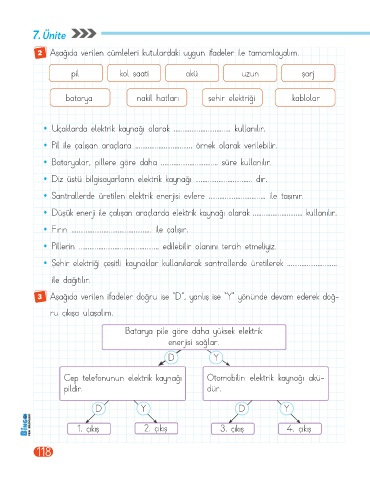 7. Ünite
2 Aşağıda verilen cümleleri kutulardaki uygun ifadeler ile tamamlayalım.
pil kol saati akü uzun şarj
batarya nakil hatları şehir elektriği kablolar
• Uçaklarda elektrik kaynağı olarak .............................. kullanılır.
• Pil ile çalışan araçlara .............................. örnek olarak verilebilir.
• Bataryalar, pillere göre daha .............................. süre kullanılır.
• Diz üstü bilgisayarların elektrik kaynağı .............................. dır.
• Santrallerde üretilen elektrik enerjisi evlere .............................. ile taşınır.
• Düşük enerji ile çalışan araçlarda elektrik kaynağı olarak .......................... kullanılır.
• Fırın .......................................... ile çalışır.
• Pillerin .......................................... edilebilir olanını tercih etmeliyiz.
• Şehir elektriği çeşitli kaynaklar kullanılarak santrallerde üretilerek ..........................
ile dağıtılır.
3 Aşağıda verilen ifadeler doğru ise "D", yanlış ise "Y" yönünde devam ederek doğ-
ru çıkışa ulaşalım.
Batarya pile göre daha yüksek elektrik
enerjisi sağlar.
D Y
Cep telefonunun elektrik kaynağı
pildir.
Otomobilin elektrik kaynağı akü-
dür.
D Y D Y
1. çıkış 2. çıkış 3. çıkış 4. çıkış
118